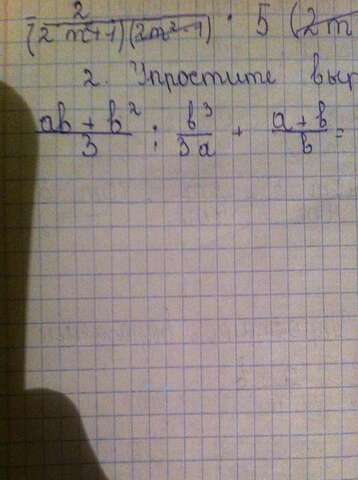 2
(2m+1)(2m²-1) : 5 (2m
2. Упростите выр
ab + b² / 3 : b³ / 3a + a + b / b =